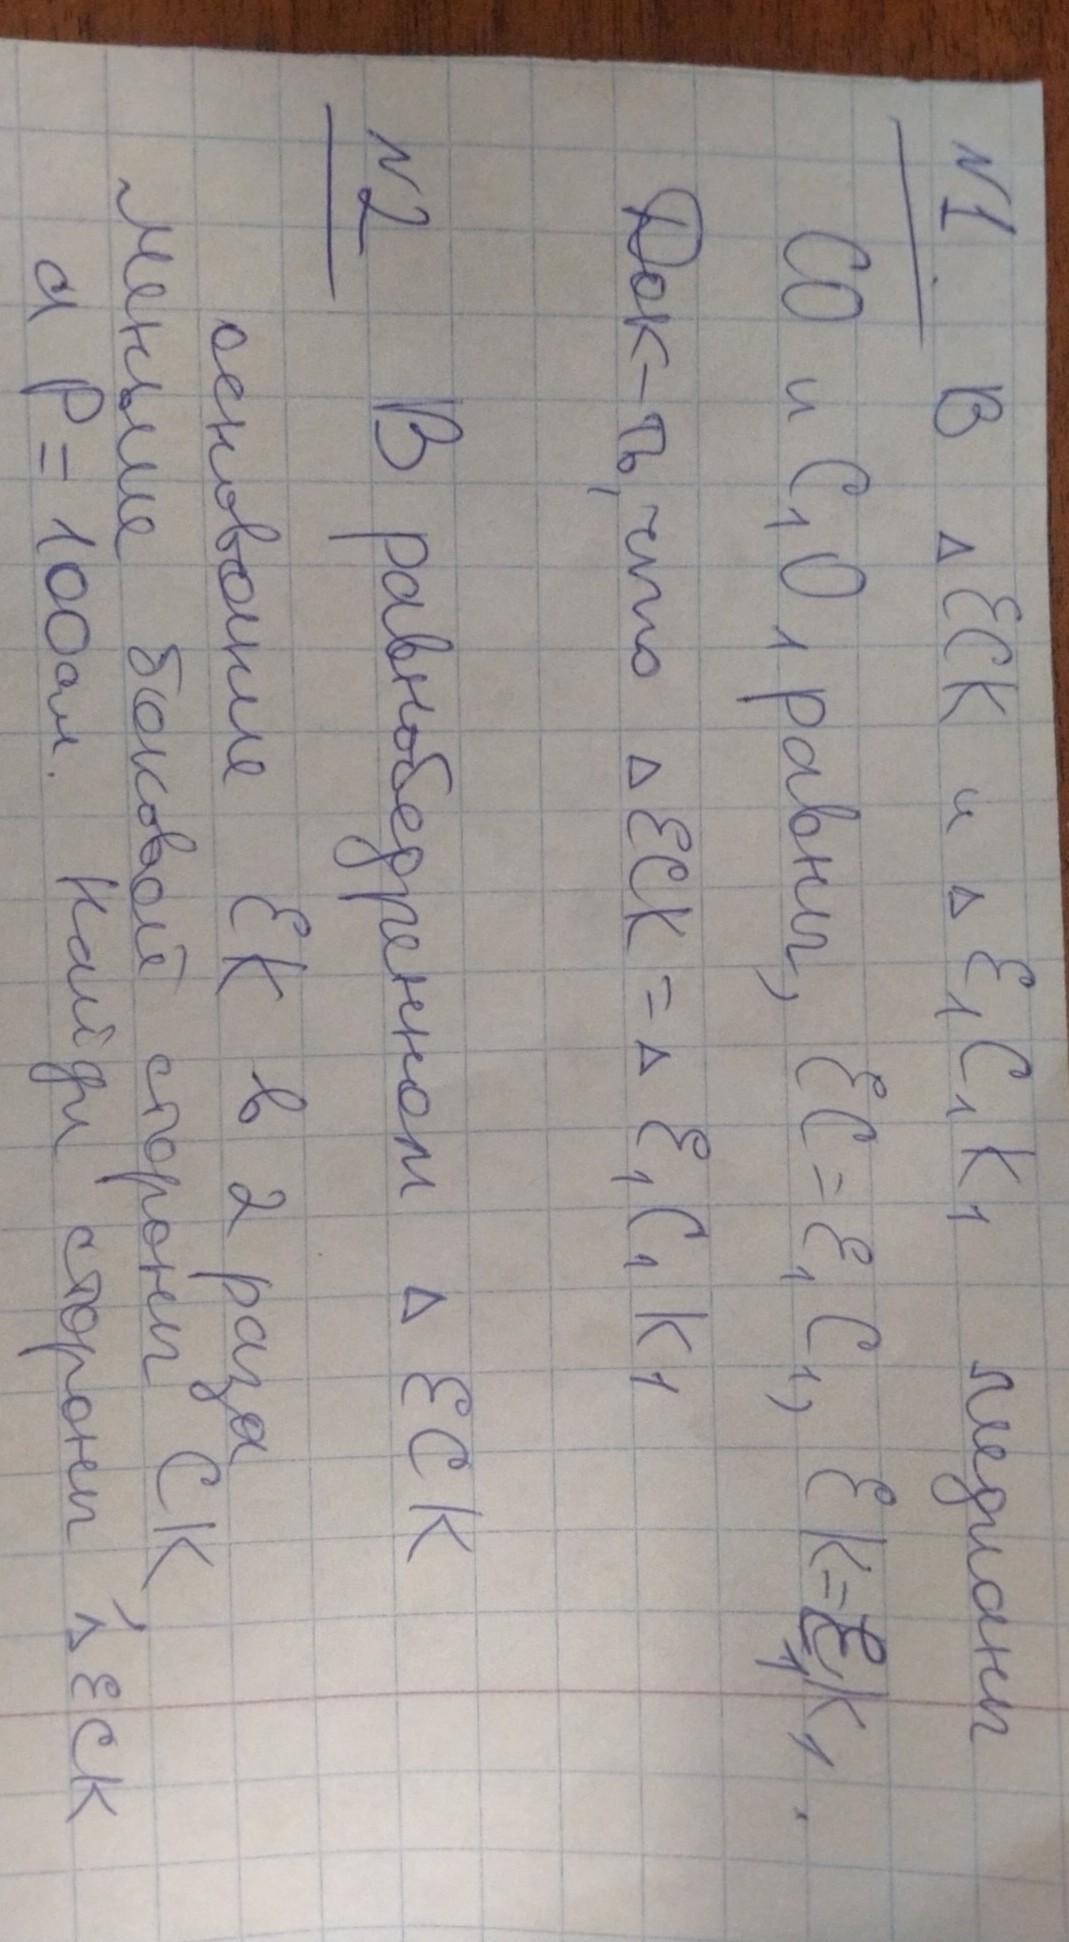 N1. В △ ECK и △ E₁C₁K₁ медианы
CO и C₁O₁ равны, EC = E₁C₁, EK = E₁K₁.
Док-ть, что △ ECK = △ E₁C₁K₁
N2 В равнобедренном △ ECK
основание EK в 2 раза
меньше боковой стороны CK,
а P = 100см. Найди стороны △ ECK